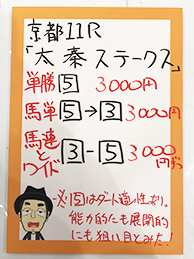 京都11R
「太秦ステークス」
単勝 5 3000円
馬単 5→3 3000円
馬連とワイド 3-5 3000円ずつ
※5はダート適性あり。
能力的にも展開的
にも狙い目とみた!